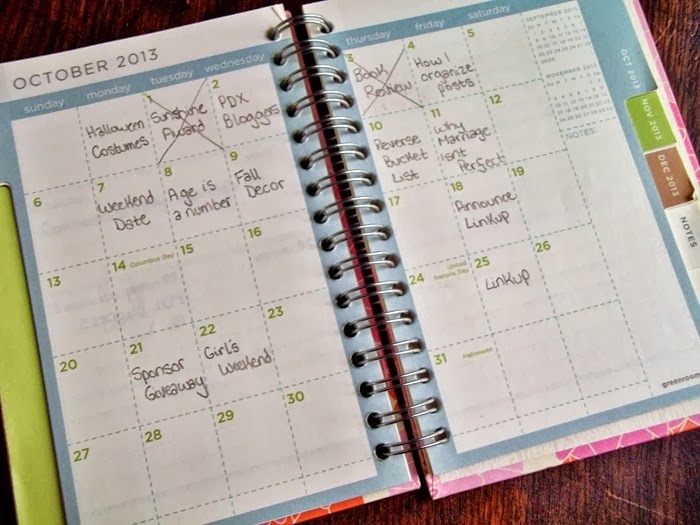 OCTOBER 2013
sunday
monday
tuesday
wednesday
thursday
friday
saturday
Halloween
Costumes
1
Sunshine
Award
2
PDX
Bloggers
3
Book
Review
4
How I
organize
posts
5
6
7
Weekend
Date
8
Age is
a number
9
Fall
Decor
10
Reverse
Bucket
List
11
Why
Marriage
isn't
Perfect
12
13
14 Columbus Day
15
16
17
18
Announce
Linkup
19
20
21
Sponsor
Giveaway
22
Girl's
Weekend
23
24 United
Nations Day
25
Linkup
26
27
28
29
30
31 Halloween
SEPTEMBER 2013
NOVEMBER 2013
NOTES:
OCT 2013
NOV 2013
DEC 2013
NOTES
greenroom